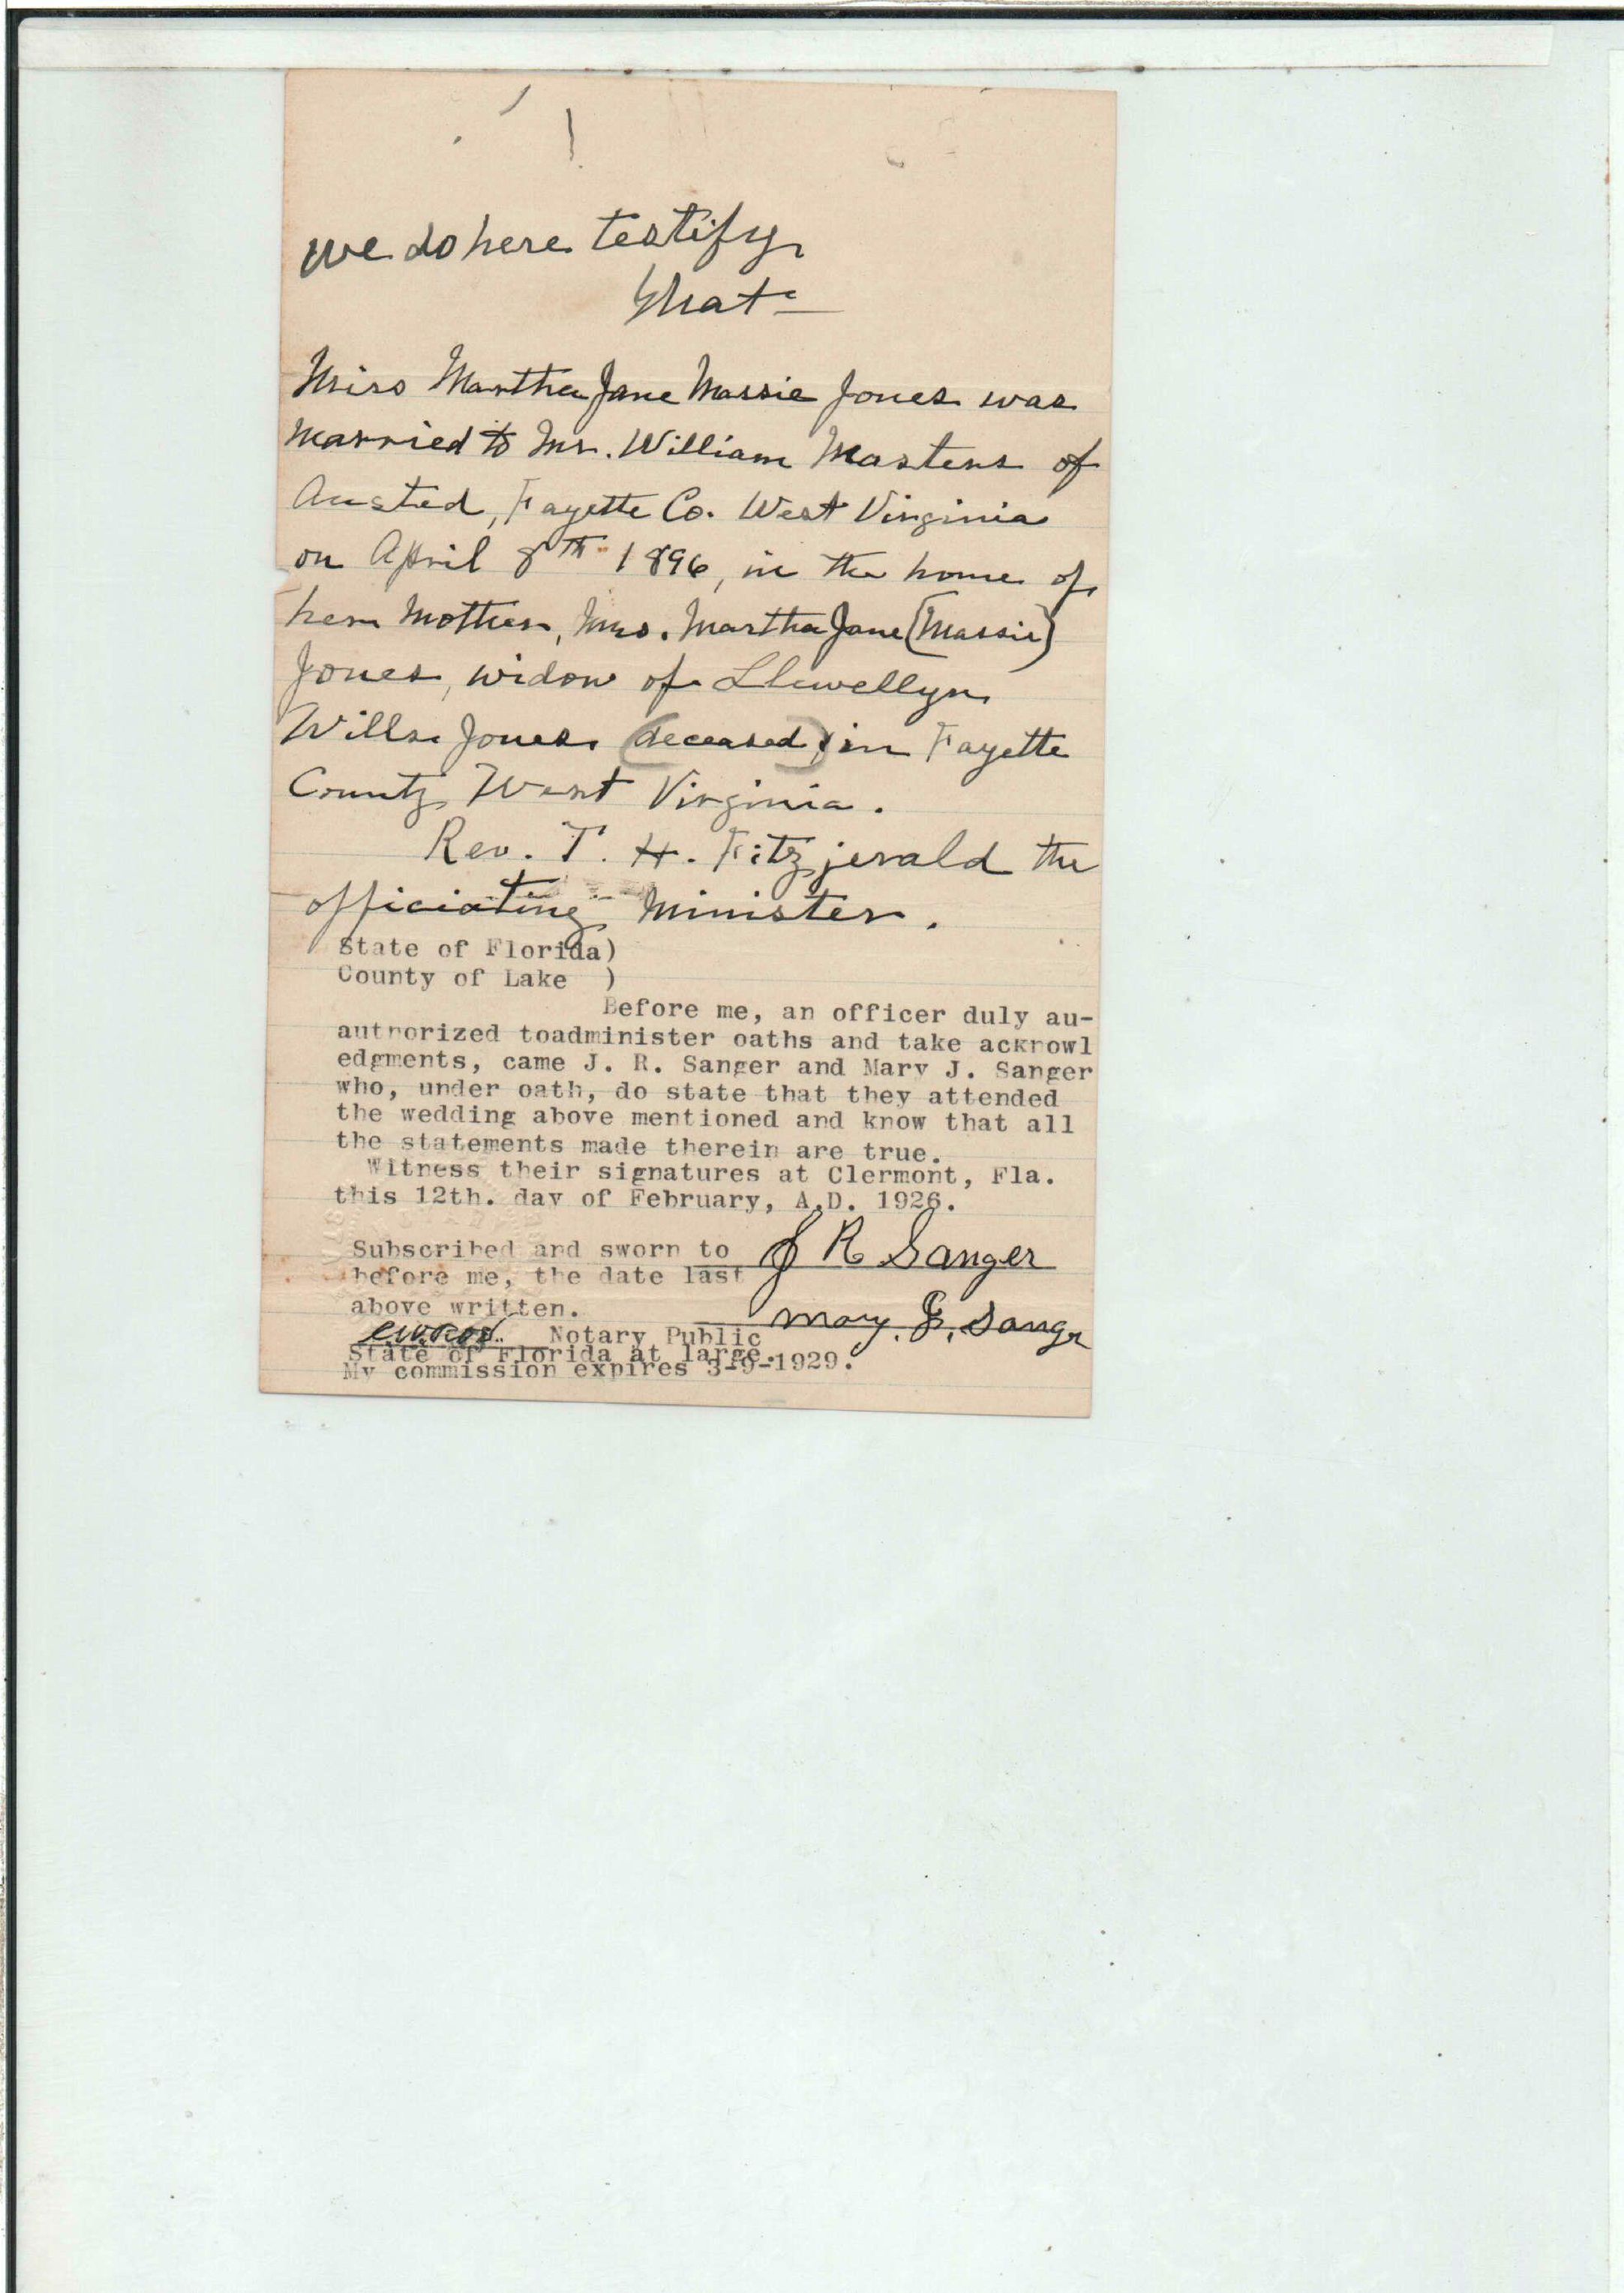 We do here testify
that—
Miss Martha Jane Massie Jones was
married to Mr. William Masters of
Austed, Fayette Co. West Virginia
on April 8th 1896, in the home of
her Mother, Mrs. Martha Jane (Massie)
Jones, widow of Llewellyn
Wills Jones (deceased) in Fayette
County West Virginia.
Rev. T. H. Fitzjerald the
officiating Minister.
State of Florida)
County of Lake )
Before me, an officer duly au-
authorized toadminister oaths and take acknowl
edgments, came J. R. Sanger and Mary J. Sanger
who, under oath, do state that they attended
the wedding above mentioned and know that all
the statements made therein are true.
Witness their signatures at Clermont, Fla.
this 12th. day of February, A.D. 1926.
Subscribed and sworn to J R Sanger
before me, the date last
above written. Mary. J. Sanger
Notary Public
State of Florida at large.
My commission expires 3-9-1929.